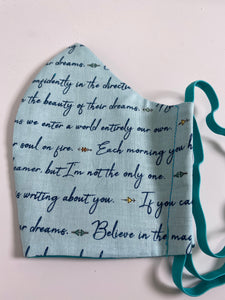 their dreams.
confidently in the directi
the beauty of their dreams.
s we enter a world entirely our own.
r soul on fire. Each morning you h
eamer, but I'm not the only one.
is writing about you. If you ca
r dreams. Believe in the mag